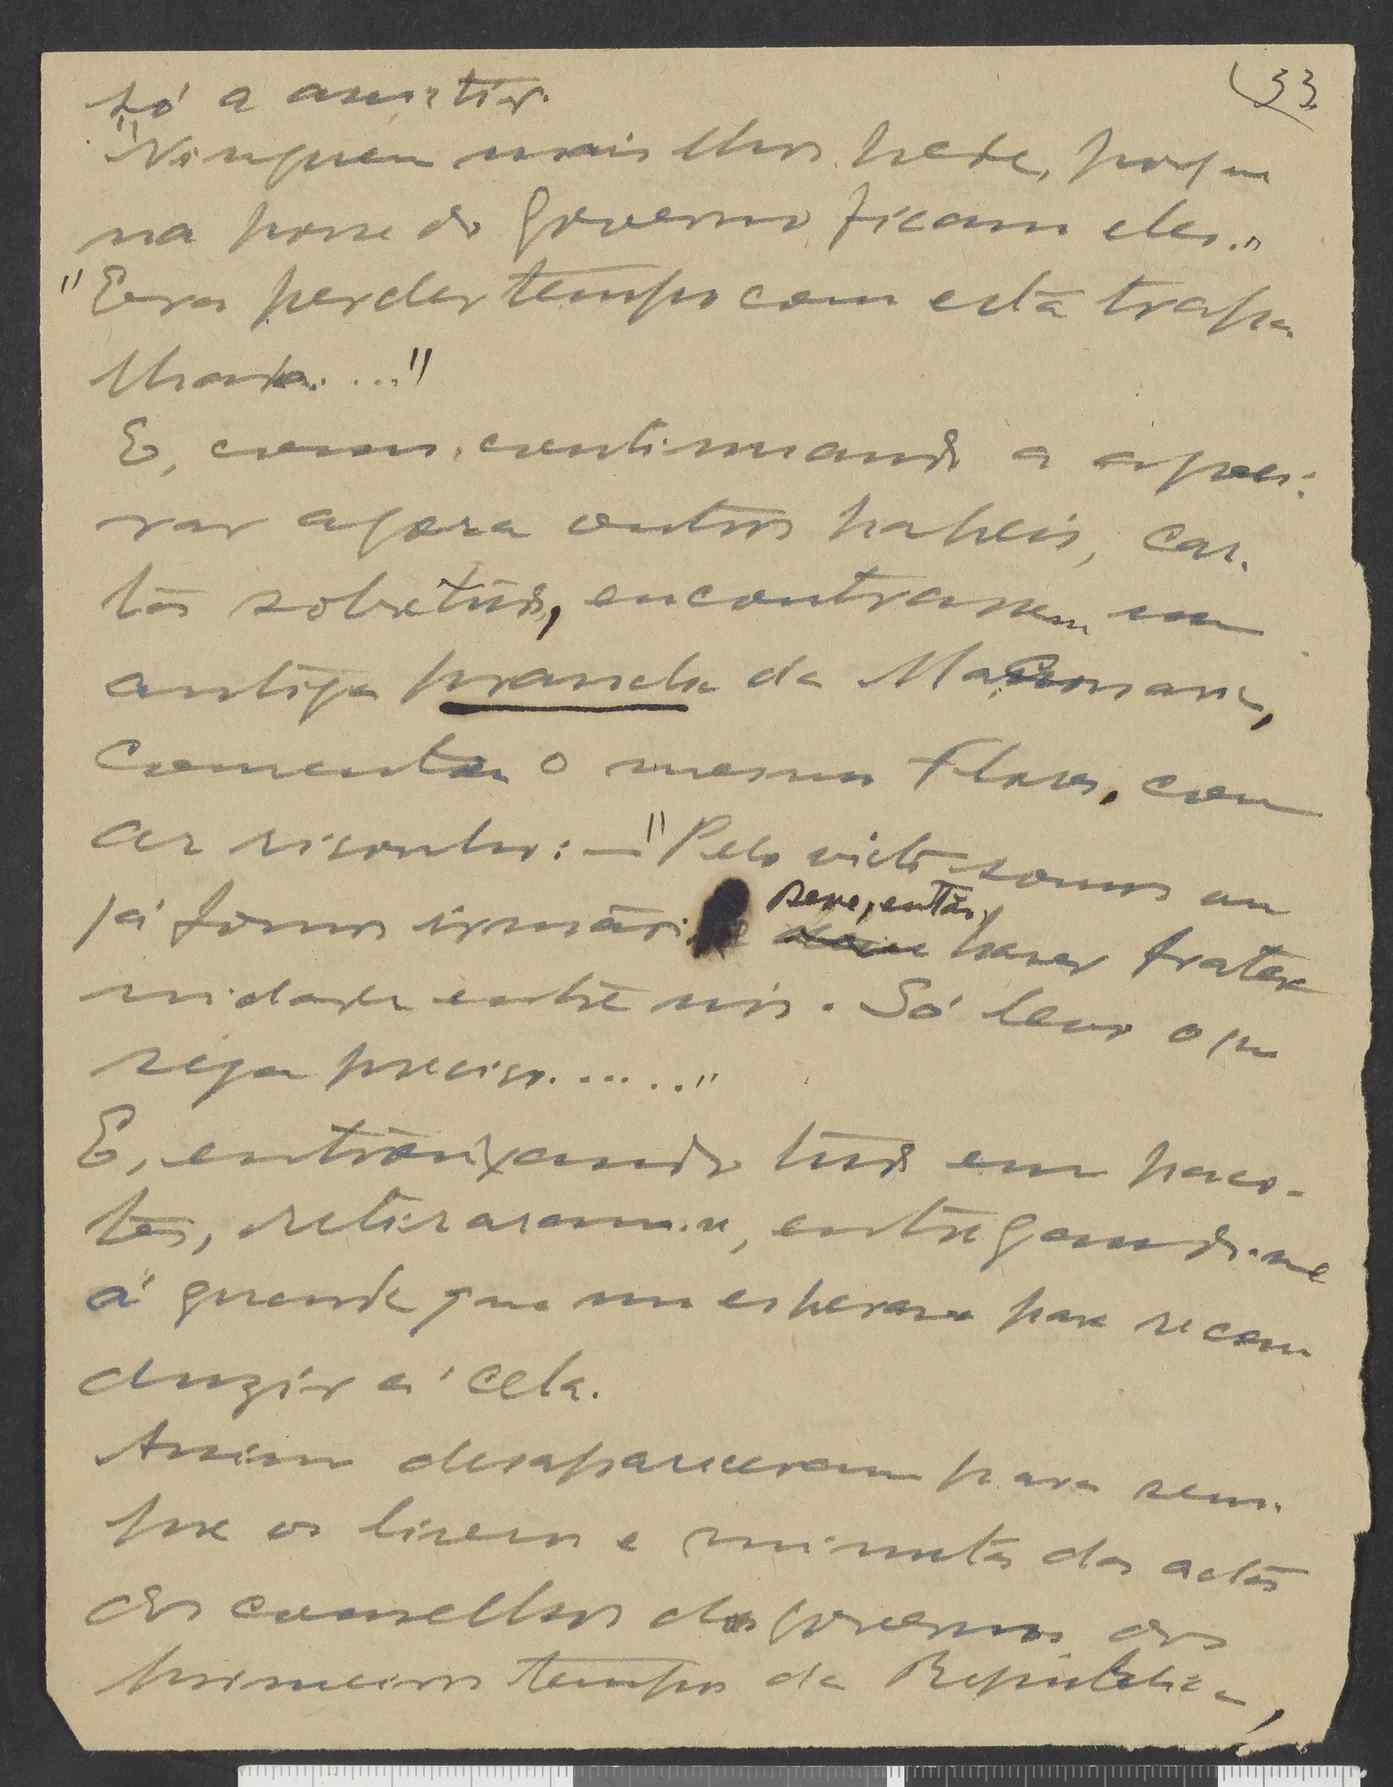 33
só a assistir.
"Ninguem mais lhos pede, porque
na posse do Governo ficam eles."
"Era perder tempo com esta trapa-
lhada...."
E, como, continuando a
rar agora outros papeis, car-
tas sobretudo, encontrassem uma
antiga prancha da Maçonaria,
comentou o mesmo Flores, com
ar risonho: — "Pelo visto somos ou
já fomos irmãos deve, então, haver frater-
nidade entre nós. Só levo o que
seja preciso......"
E, entrouxando tudo em paco-
tes, retiraram-se, entregando-me
á guarda que me esperava para recon-
duzir á cela.
Assim desapareceram para sem-
pre os livros e minutas das actas
dos conselhos dos governos dos
primeiros tempos da Republica,